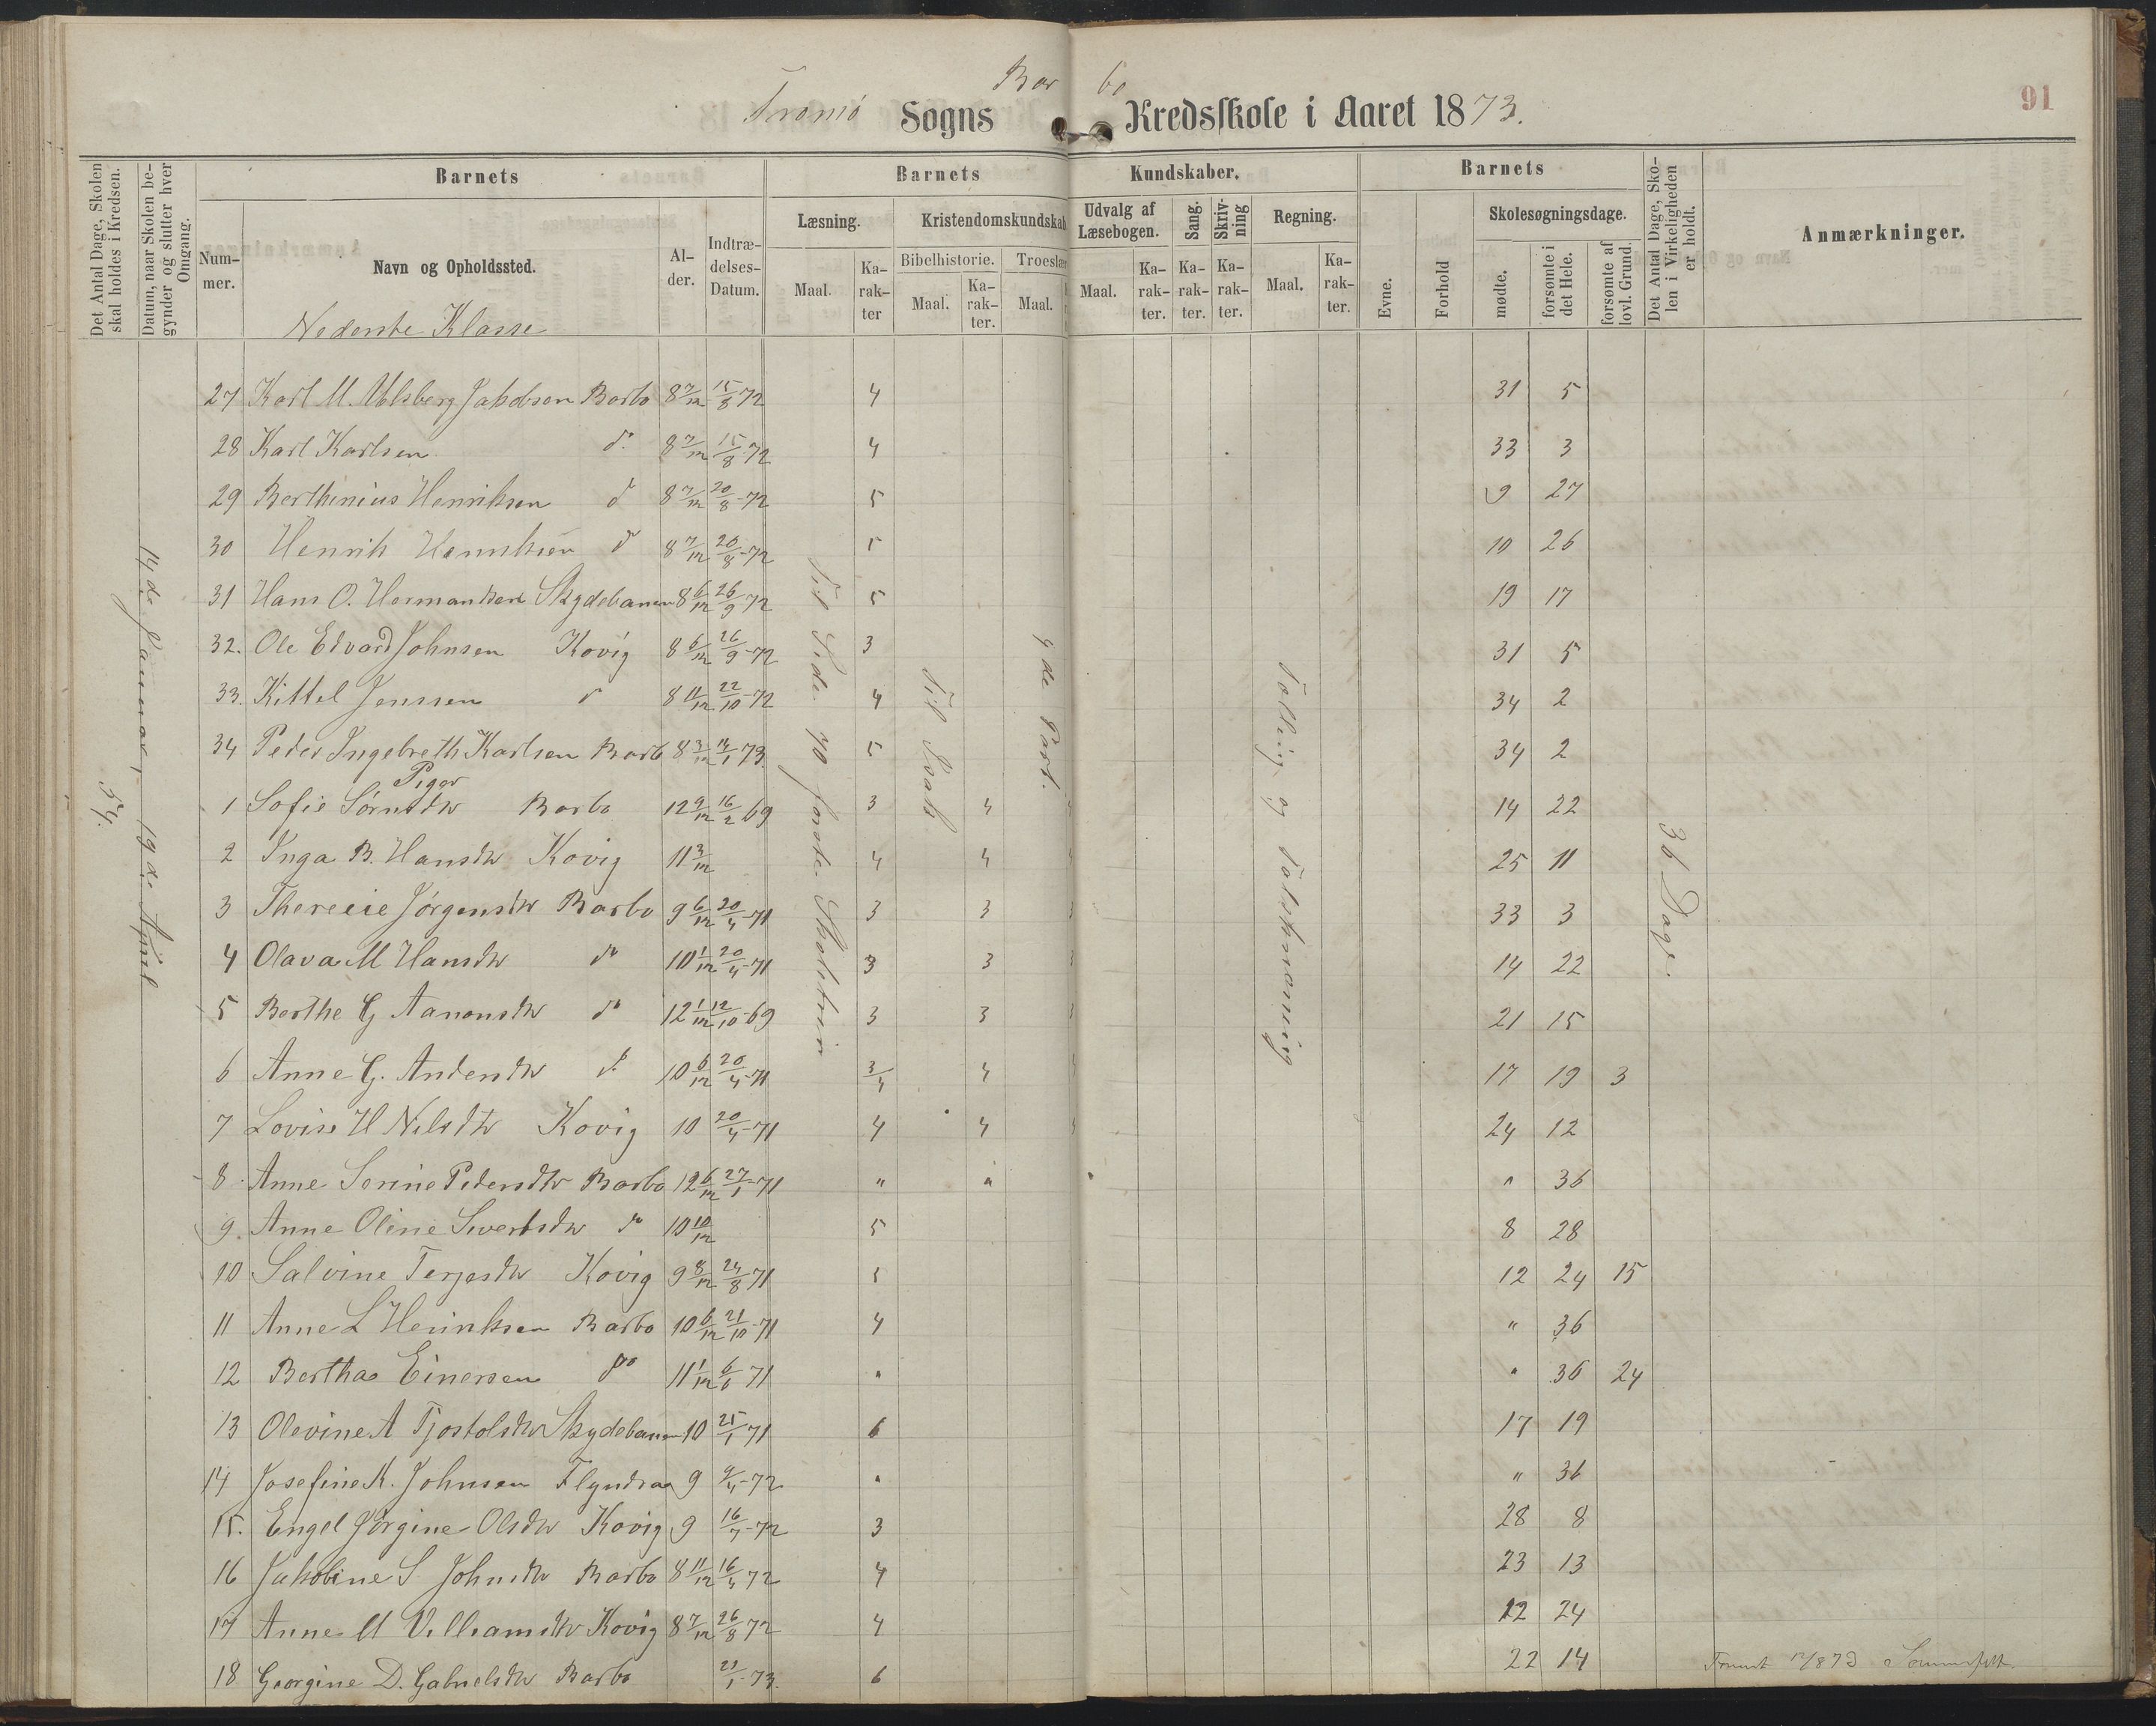 Barbo
91
Tromø Sogns Kredsskole i Aaret 1873.
Det Antal Dage, Skolen skal holdes i Kredsen.
Datum, naar Skolen begynder og slutter hver Omgang.
Barnets
Barnets Kundskaber.
Barnets
Det Antal Dage, Skolen i Virkeligheden er holdt.
Anmærkninger.
Nummer.
Navn og Opholdssted.
Alder.
Indtrædelses-Datum.
Læsning.
Kristendomskundskab
Udvalg af Læsebogen.
Sang.
Skrivning
Regning.
Evne.
Forhold
Skolesøgningsdage.
Bibelhistorie.
Troeslær
Maal. Karakter Maal. Karakter. Maal. Maal. Karakter. Karakter. Karakter. Maal. Karakter.
mødte.
forsømte i det Hele.
forsømte af lovl. Grund.
Nederste Klasse
54.
14de Januar, 19de April
Til Side 70 første Skoletrin
Til Isak
4de Part.
Tælling og Talskrivning
36 Dage.
27 Karl M. Jakobsen Barbo 8 7/12 15/8 72 4 31 5
28 Karl Karlsen do 8 7/12 15/8 72 4 33 3
29 Berthinius Henriksen do 8 7/12 20/8-72 5 9 27
30 Henrik Henriksen do 8 7/12 20/8-72 5 10 26
31 Hans O. Hermansen Skydebanen 8 6/12 26/9 72 5 19 17
32. Ole Edvard Johnsen Kovig 8 6/12 26/9-72 3 31 5
33. Kittel Jenssen do 8 11/12 22/10-72 4 34 2
34 Peder Ingebreth Karlsen Barb 8 3/12 14/1 73. 5 34 2
Piger
1 Sofie Sørnsdtr Barbo 12 9/12 16/2 69 3 4 14 22
2 Inga B. Hansdtr Kovig 11 3/12 4 4 25 11
3 Theresie Jørgensdtr Barbo 9 6/12 20/4-71 3 3 33 3
4 Olava M Hansdtr do 10 1/12 20/4-71 3 3 14 22
5 Berthe G Aanonsdtr do 12 1/12 12/10-69 3 3 21 15
6 Anne G. Andersdtr do 10 6/12 20/4-71 3/4 4 17 19 3
7 Lovise H Nilsdtr Kovig 10 20/4-71 4 4 24 12
8 Anne Serine Pedersdtr Barbo 12 6/12 27/1-71 " " " 36
9. Anne Oline Sivertsdtr do 10 10/12 5 8 28
10 Salvine Terjesdtr Kovig 9 8/12 24/8 71 5 12 24 15
11 Anne L Henriksen Barbo 10 6/12 21/10-71 4 " 36
12 Bertha Einersen do 11 1/12 6/6 71 " " 36 24
13 Olevine A Tjostolsdtr Skydebanen 10 25/1 71 6 17 19
14 Josefine K. Johnsen Flyndraa 9 9/4-72 " " 36
15. Engel Jørgine Olsdtr Kovig 9 16/4-72 3 28 8
16 Jakobine S Johnsdtr Barbo 8 11/12 16/4 72 4 23 13
17 Anne M Villiamsdtr Kovig 8 7/12 26/8 72 4 12 24
18 Georgine D. Gabrielsdtr Barbo 1-73. 6 22 14
Sommerfelt